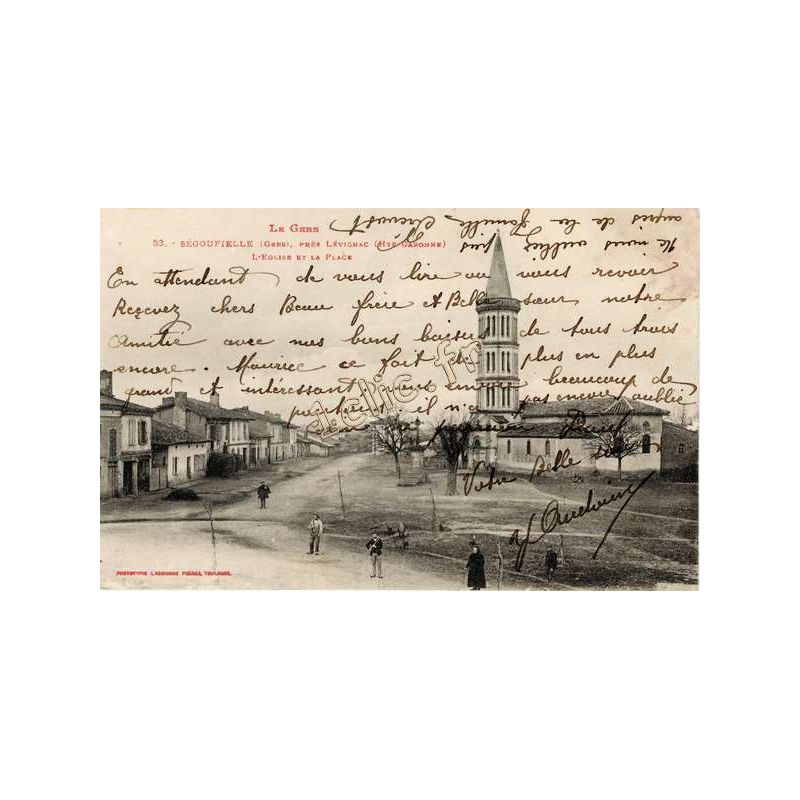 Le Gers
53. - SÉGOUFIELLE (Gers), près Lévignac (Hte-Garonne)
L'Eglise et la Place
Ne nous oubliez pas
auprès de la famille
En attendant de vous lire ou vous revoir
Reçevez chers Beau frère et Belle sœur notre
Amitié avec nos bons baisers de tous trois
encore. Maurice ce fait de plus en plus
grand et intéressant vous envoie beaucoup de
il n'a pas encore oublié
Votre Belle
clic.fr
PHOTOTYPIE LABOUCHE FRÈRES, TOULOUSE